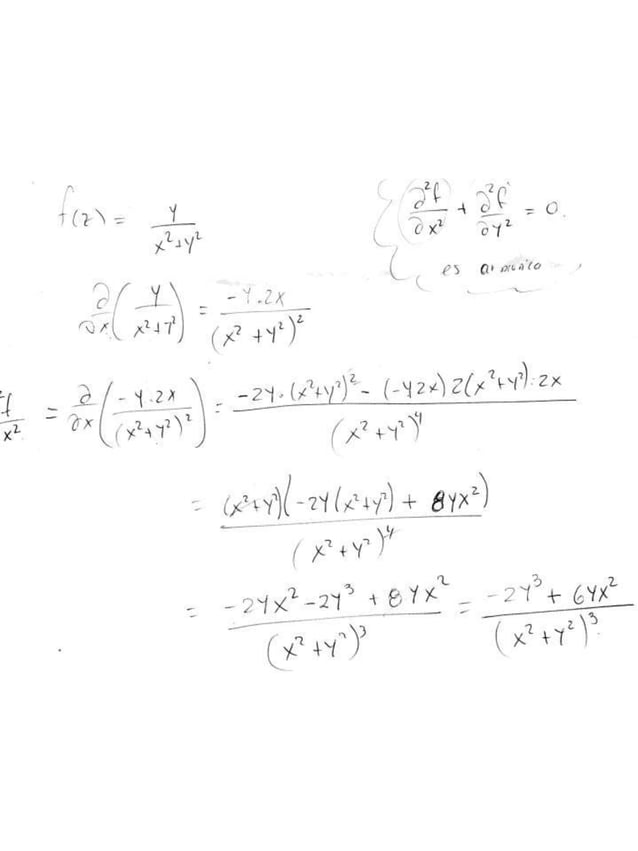 f(z) = y / (x² + y²)
{ ∂²f/∂x² + ∂²f/∂y² = 0.
es armónico
∂/∂x ( y / (x² + y²) ) = -y.2x / (x² + y²)²
²f/x² = ∂/∂x ( -y.2x / (x² + y²)² ) = -2y.(x²+y²)² - (-y2x) 2(x²+y²).2x / (x² + y²)⁴
= (x²+y²)(-2y(x²+y²) + 8yx²) / (x² + y²)⁴
= -2yx² - 2y³ + 8yx² / (x² + y²)³ = -2y³ + 6yx² / (x² + y²)³